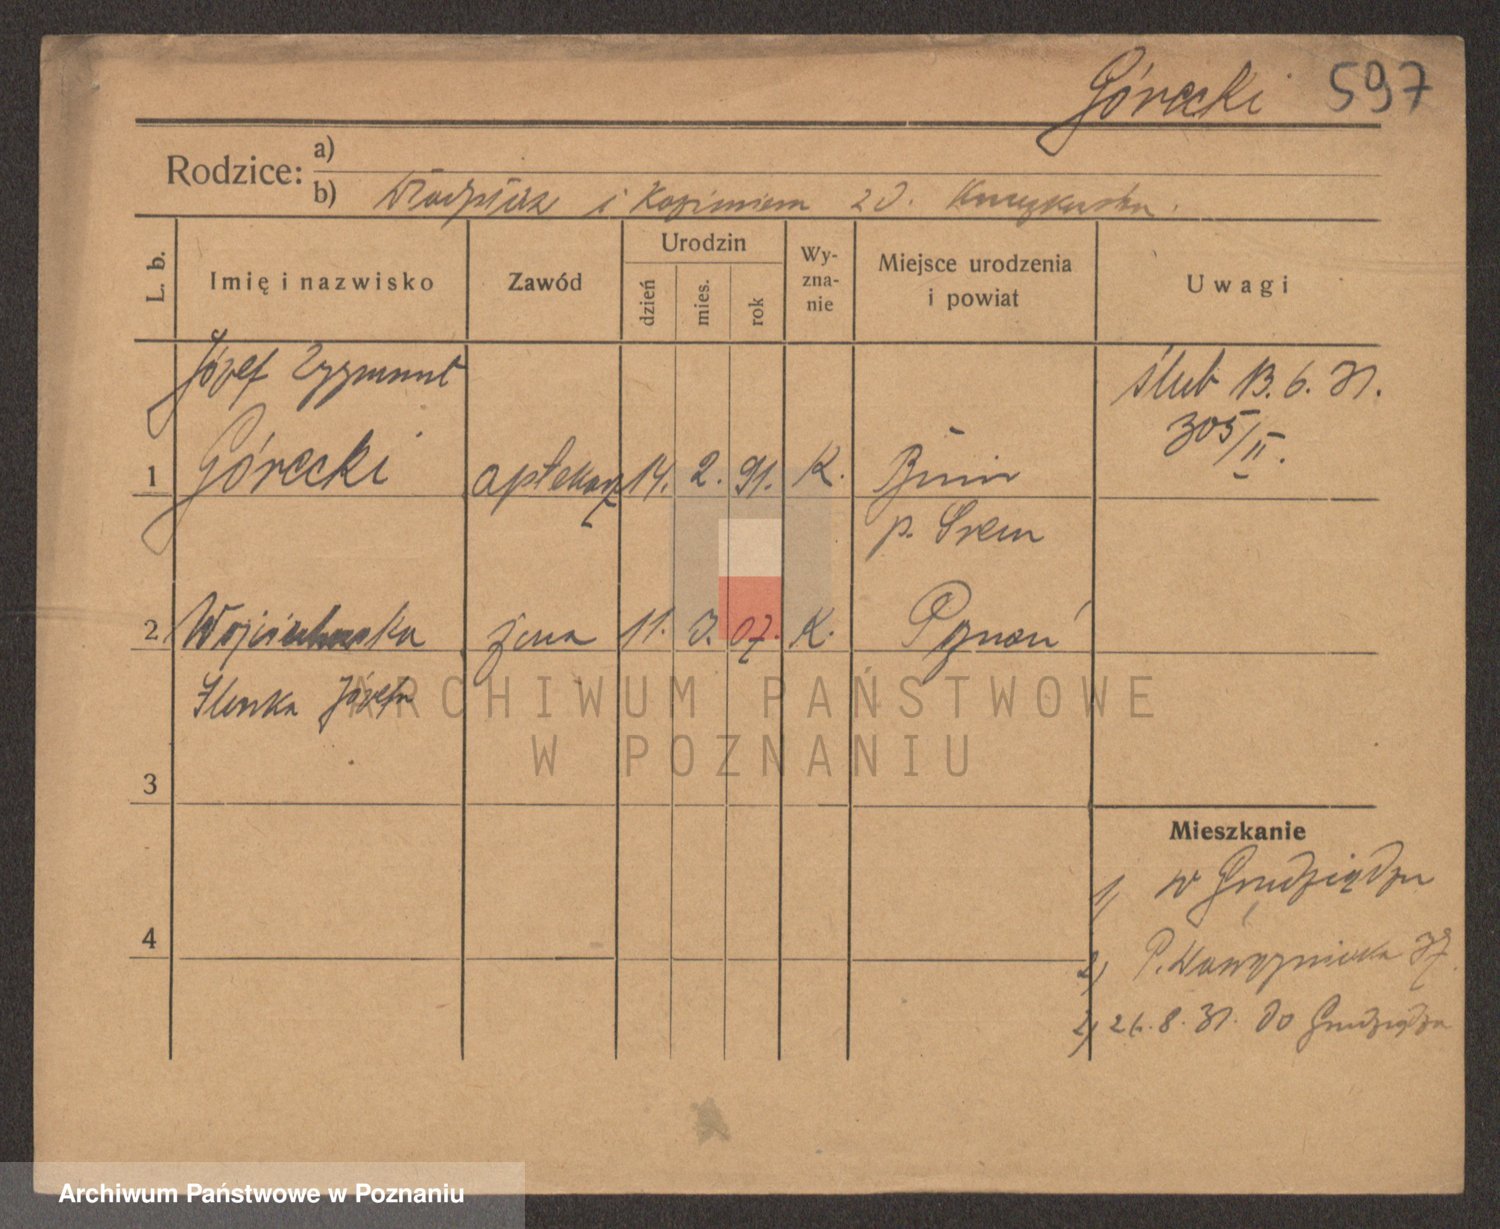 Górecki 597
Rodzice: a)
b) Władysław i Kazimiera z d.
L. b.
Imię i nazwisko
Zawód
Urodzin
dzień
mies.
rok
Wy-
zna-
nie
Miejsce urodzenia
i powiat
Uwagi
Józef Zygmunt
ślub 13. 6. 31.
305/II.
1 Górecki aptekarz 14. 2. 91. K. Bnin
p. Śrem
2 żona 11. 3. 07. K. Poznań
Józefa
ARCHIWUM PAŃSTWOWE
W POZNANIU
3
Mieszkanie
1) w Grudziądzu
4
2) P. Wawrzyniaka 37.
3) 26. 8. 31. do Grudziądza
Archiwum Państwowe w Poznaniu